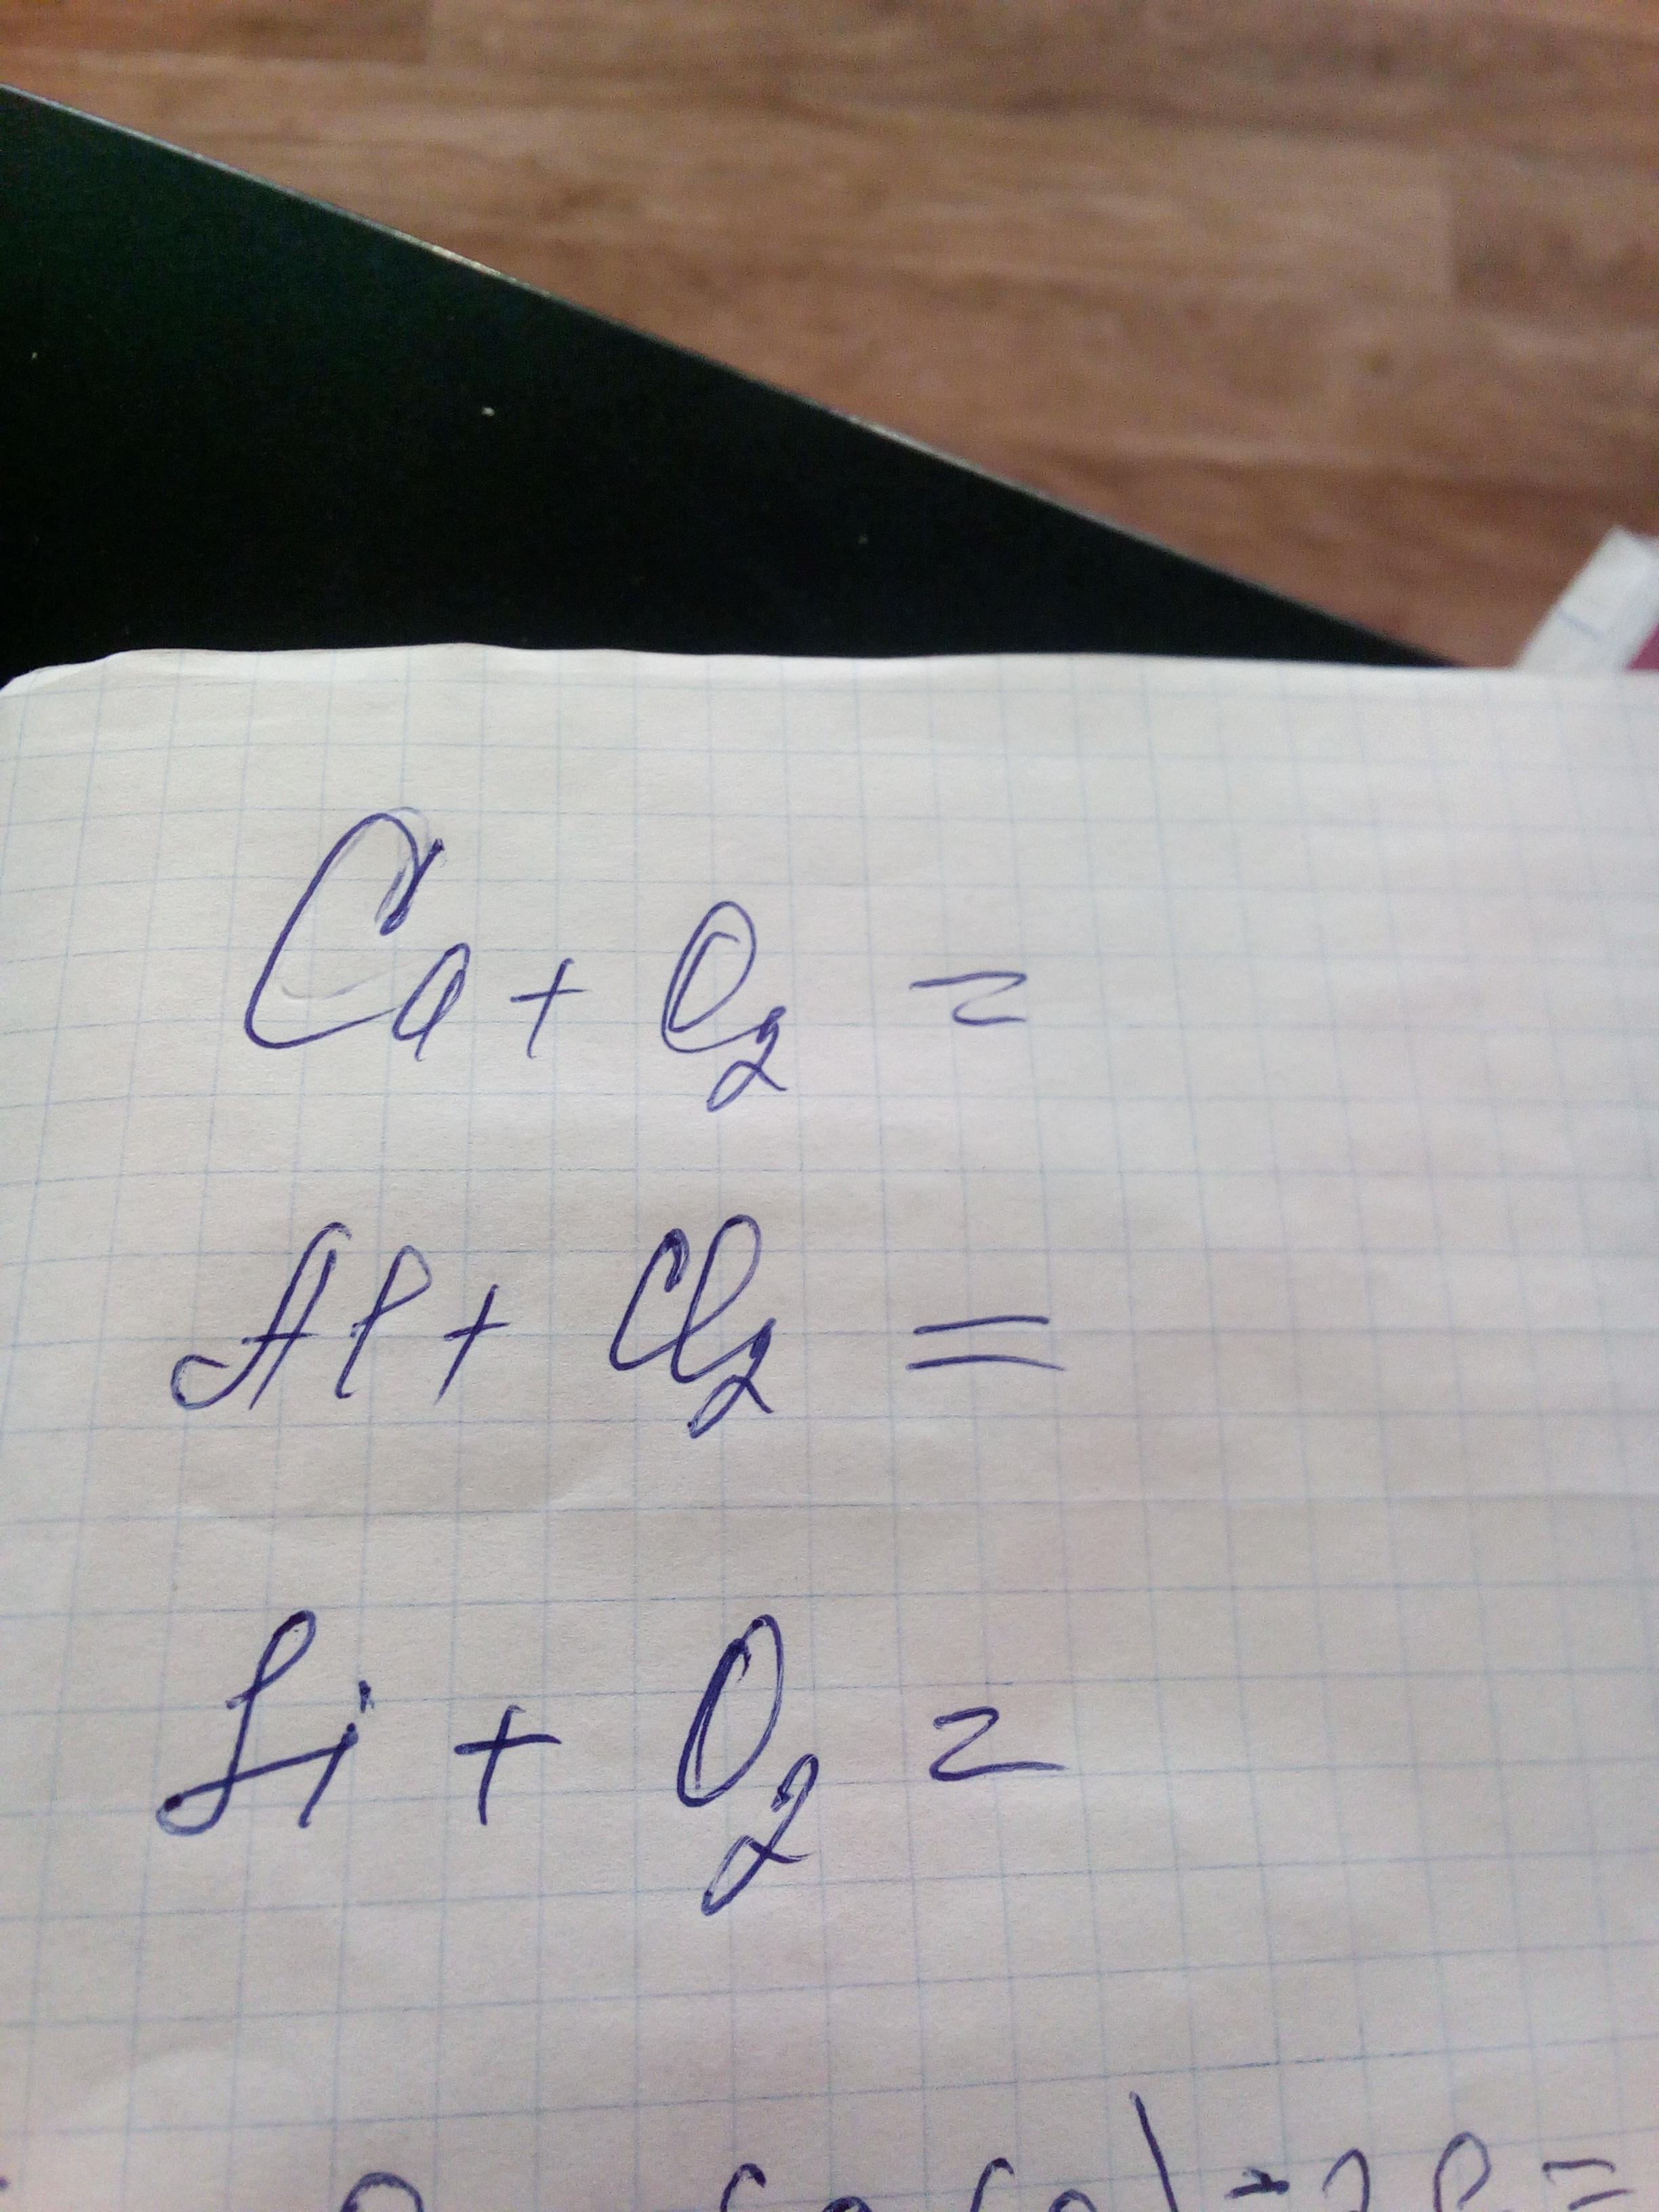 Ca + O₂ =
Al + Cl₂ =
Li + O₂ =